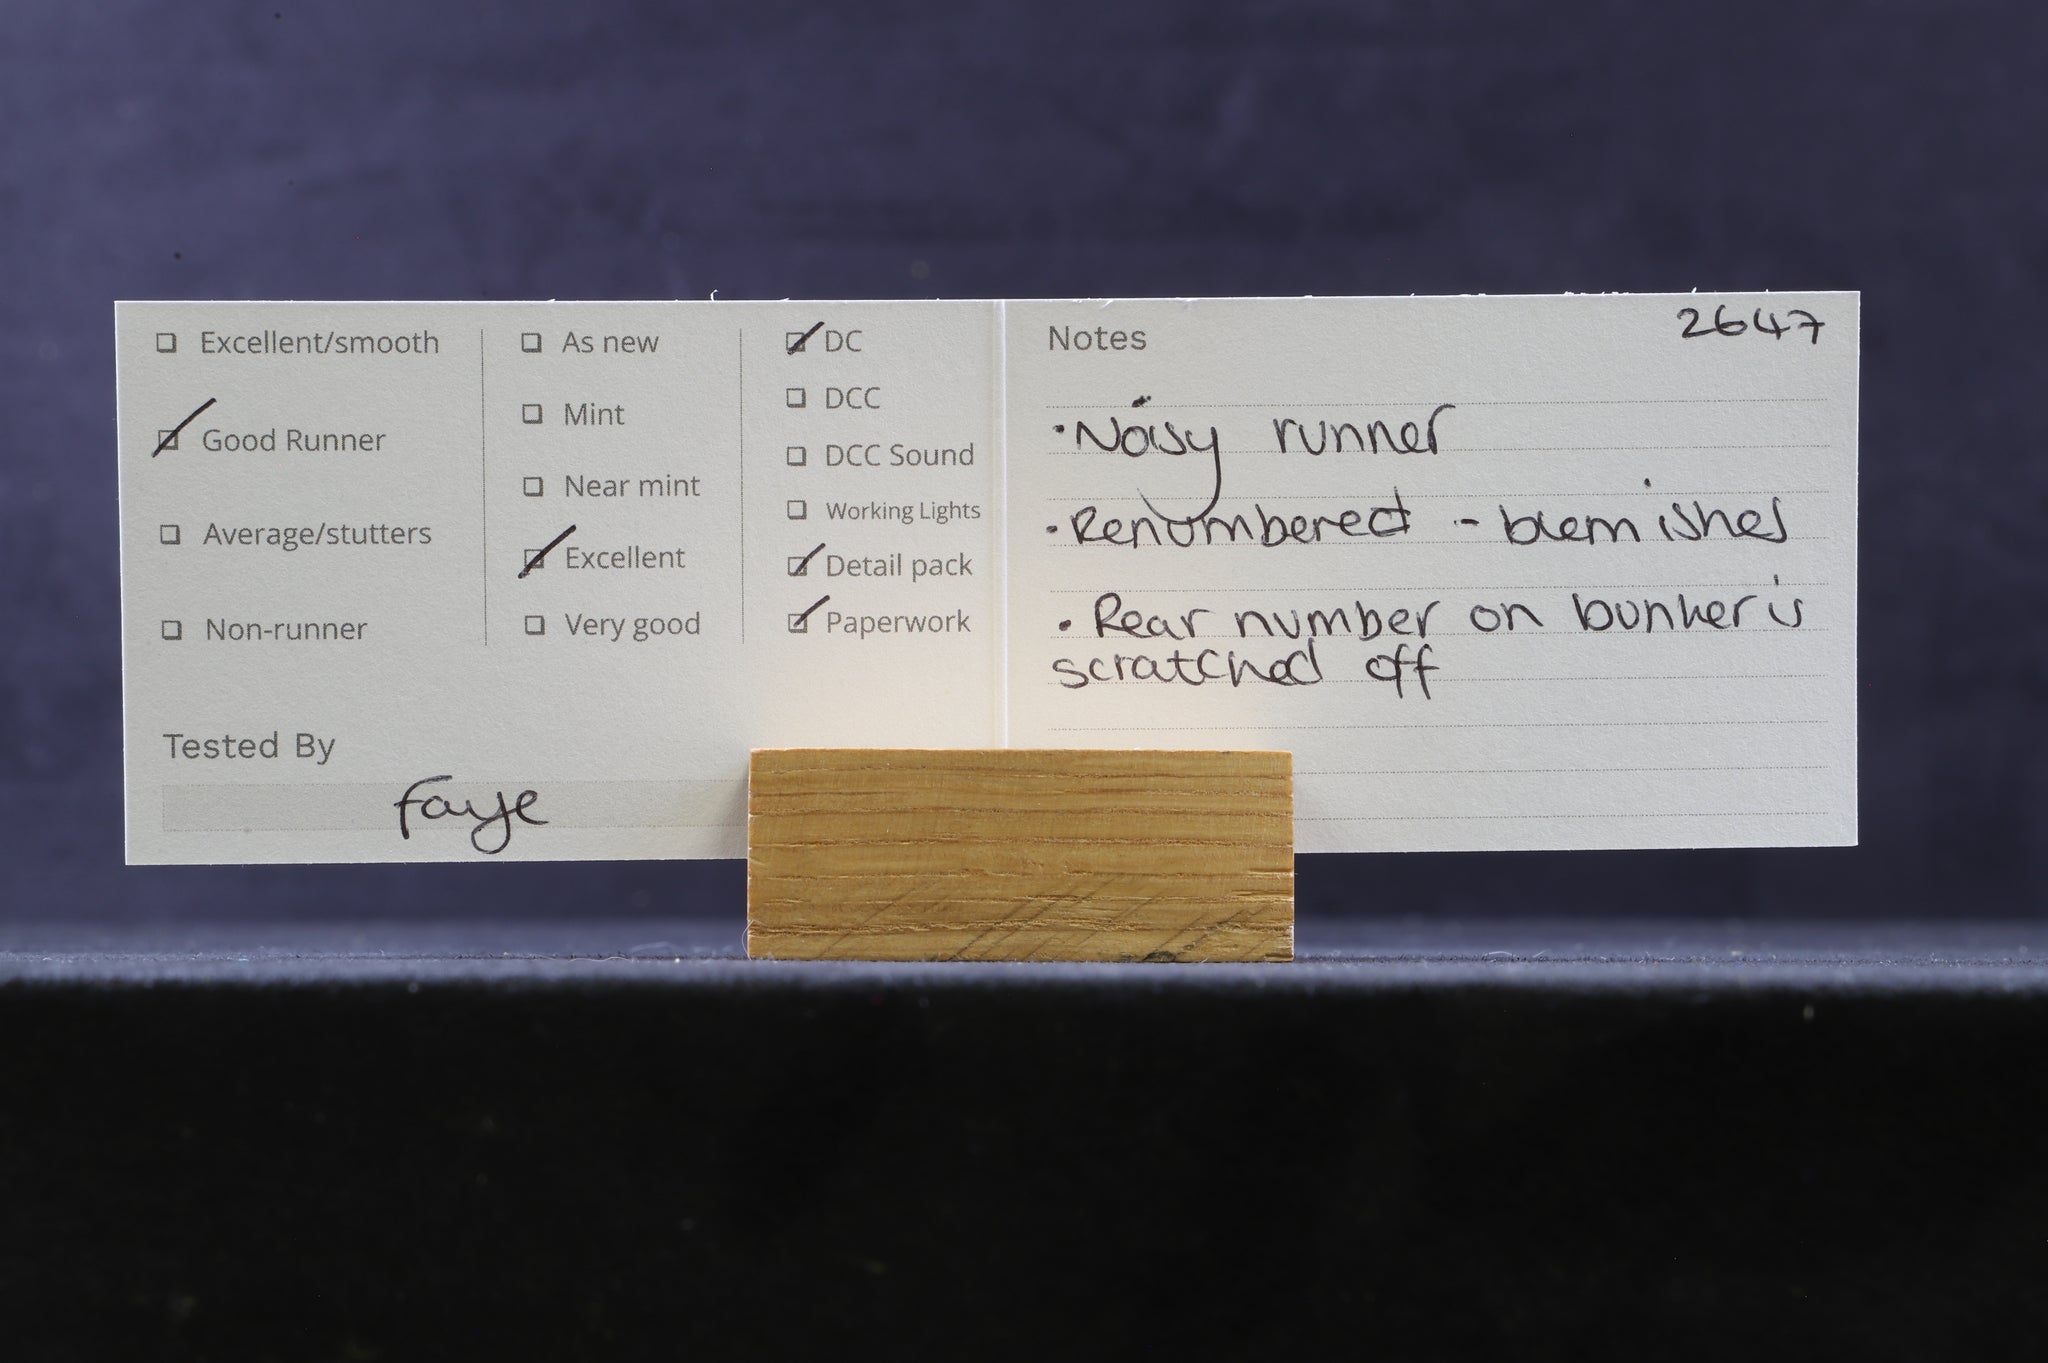 Excellent/smooth
Good Runner
Average/stutters
Non-runner
As new
Mint
Near mint
Excellent
Very good
DC
DCC
DCC Sound
Working Lights
Detail pack
Paperwork
Tested By
Faye
Notes
2647
·Noisy runner
·Renumbered - blemishes
·Rear number on bunker is
scratched off